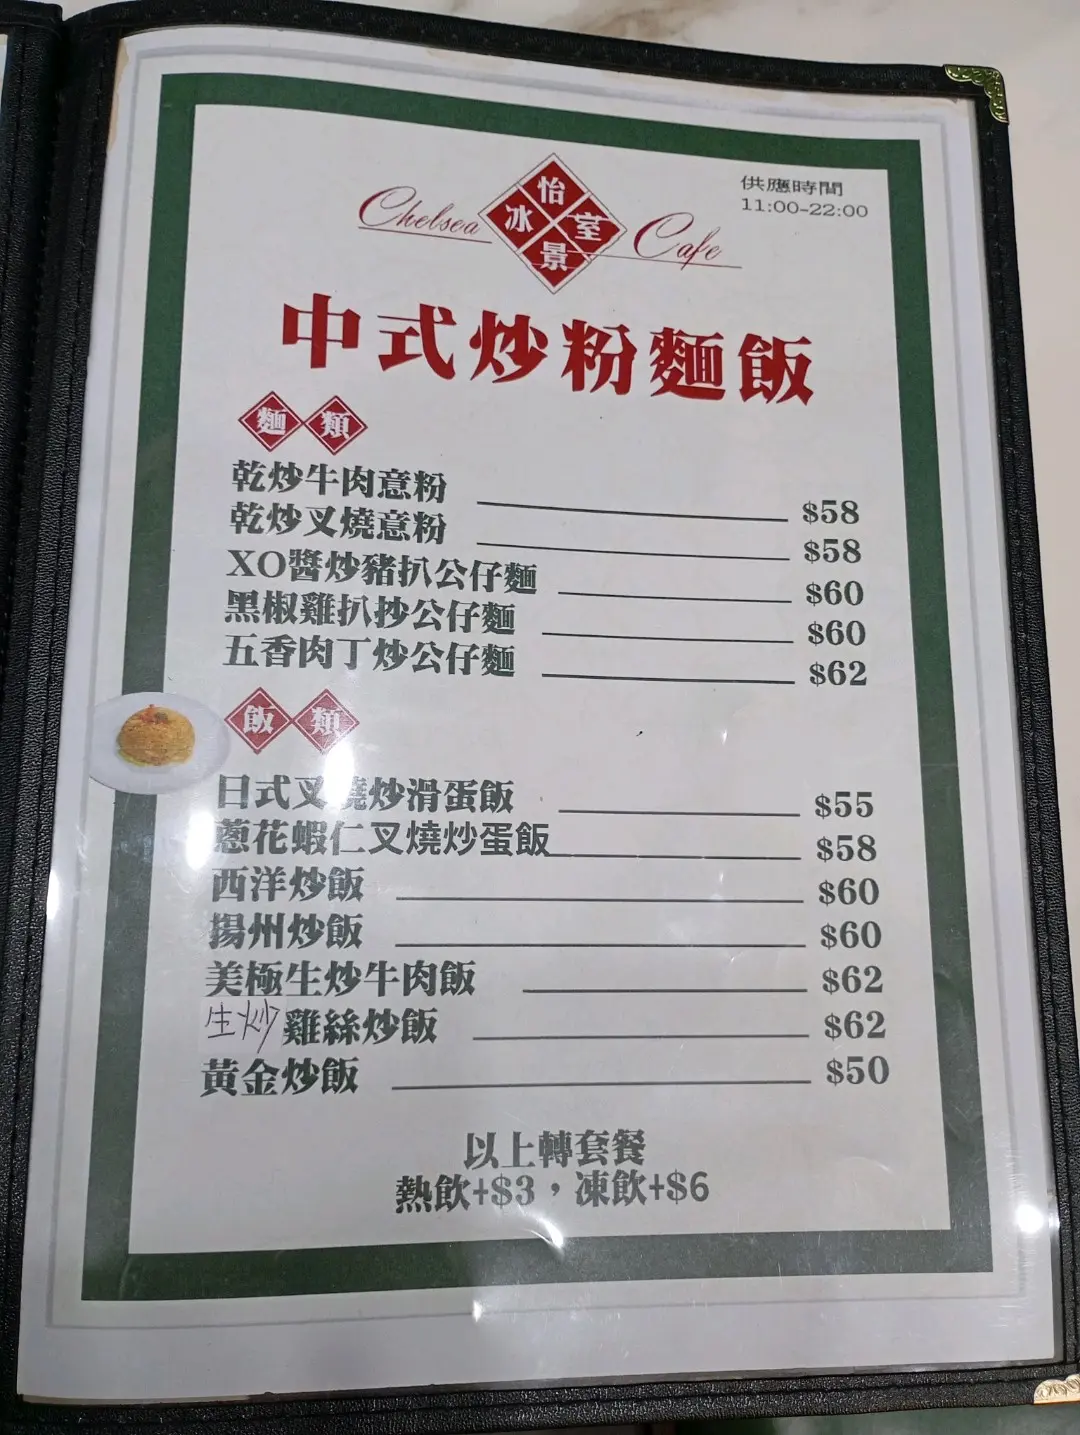 供應時間
11:00-22:00
Chelsea
怡
冰室
景
Cafe
中式炒粉麵飯
麵類
乾炒牛肉意粉 $58
乾炒叉燒意粉 $58
XO醬炒豬扒公仔麵 $60
黑椒雞扒抄公仔麵 $60
五香肉丁炒公仔麵 $62
飯類
日式叉燒炒滑蛋飯 $55
蔥花蝦仁叉燒炒蛋飯 $58
西洋炒飯 $60
揚州炒飯 $60
美極生炒牛肉飯 $62
生炒雞絲炒飯 $62
黃金炒飯 $50
以上轉套餐
熱飲+$3，凍飲+$6